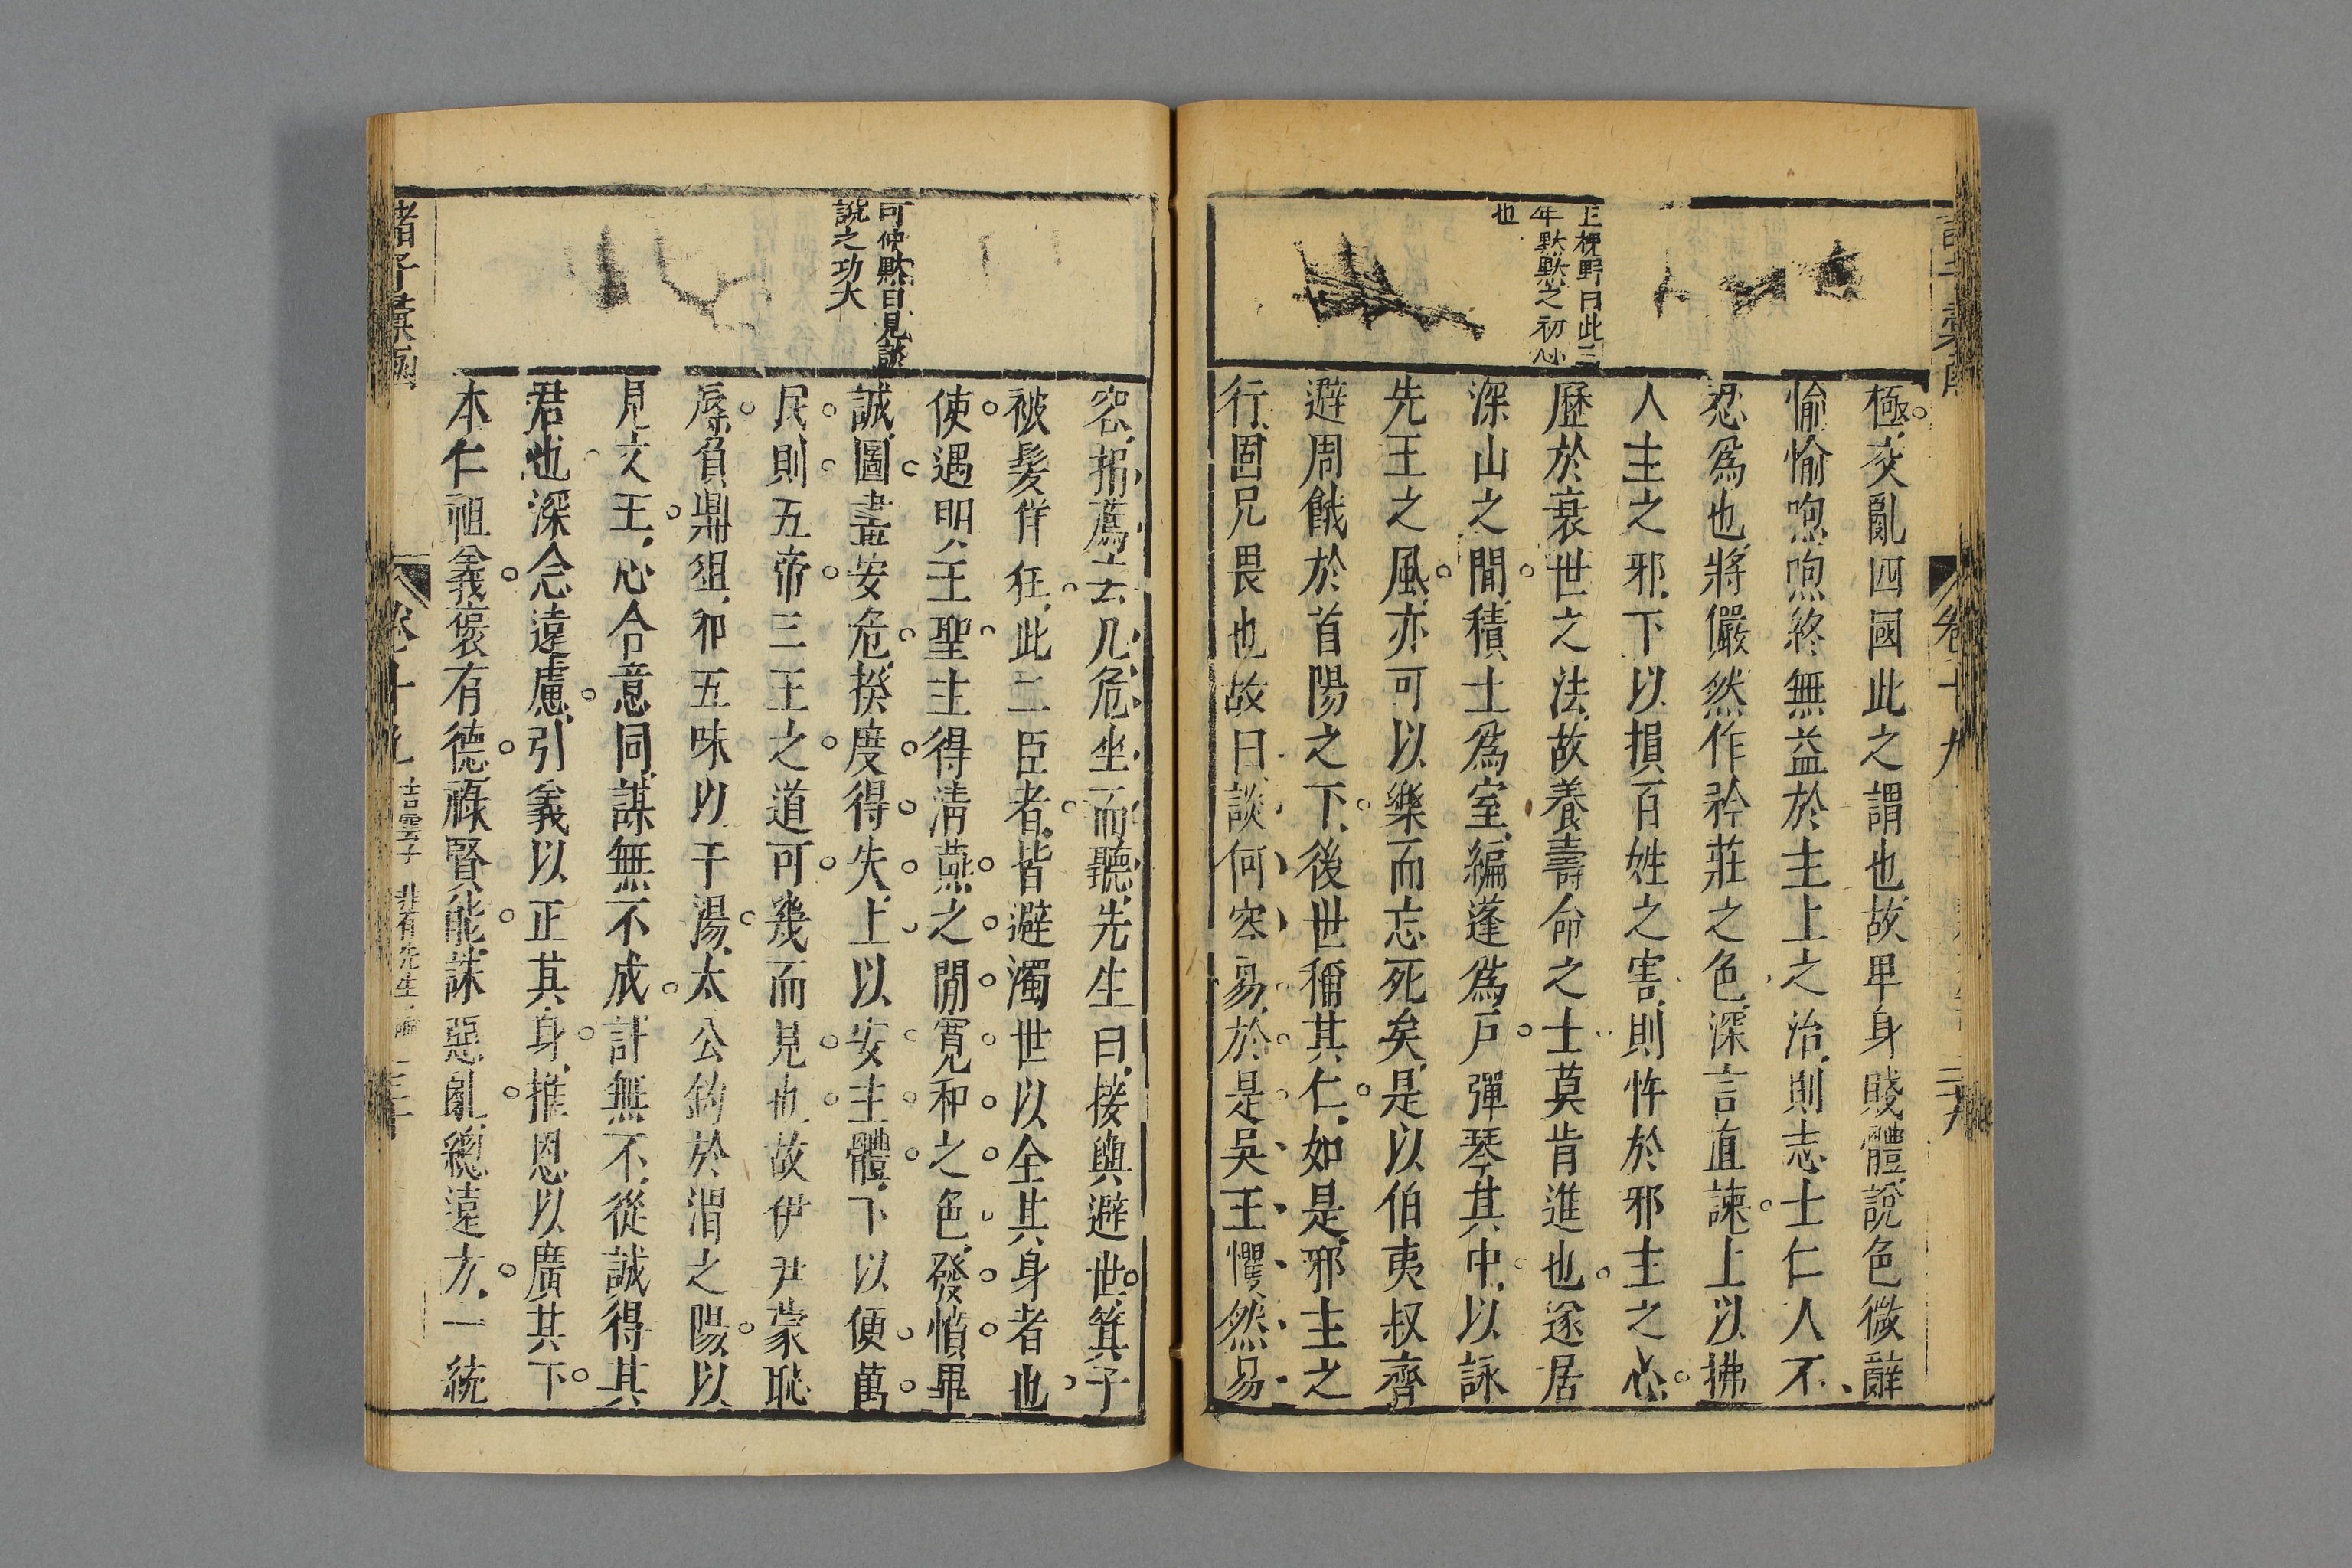 王梘野曰此三
年默默之初心
也
極交亂四國此之謂也故卑身賤體說色微辭
愉愉呴呴終無益於主上之治則志士仁人不
忍爲也將儼然作矜莊之色深言直諫上以拂
人主之邪下以損百姓之害則忤於邪主之心
歷於衰世之法故養壽命之士莫肯進也遂居
深山之間積土爲室編蓬爲戶彈琴其中以詠
先王之風亦可以樂而忘死矣是以伯夷叔齊
避周餓於首陽之下後世稱其仁如是邪主之
行固兄畏也故曰談何容易於是吳王懼然易
卷十九
可仲默曰見談
說之功大
容捐薦去几危坐而聽先生曰接輿避世箕子
被髮佯狂此二臣者皆避濁世以全其身者也
使遇明王聖主得淸燕之閒寬和之色發憤畢
誠圖畫安危揆度得失上以安主體下以便萬
民則五帝三王之道可幾而見也故伊尹蒙恥
辱負鼎俎和五味以干湯太公釣於渭之陽以
見文王心合意同謀無不成計無不從誠得其
君也深念遠慮引義以正其身推恩以廣其下
本仁祖義褒有德祿賢能誅惡亂總遠方一統
諸子彙函
卷十九 吉雲子 非有先生論